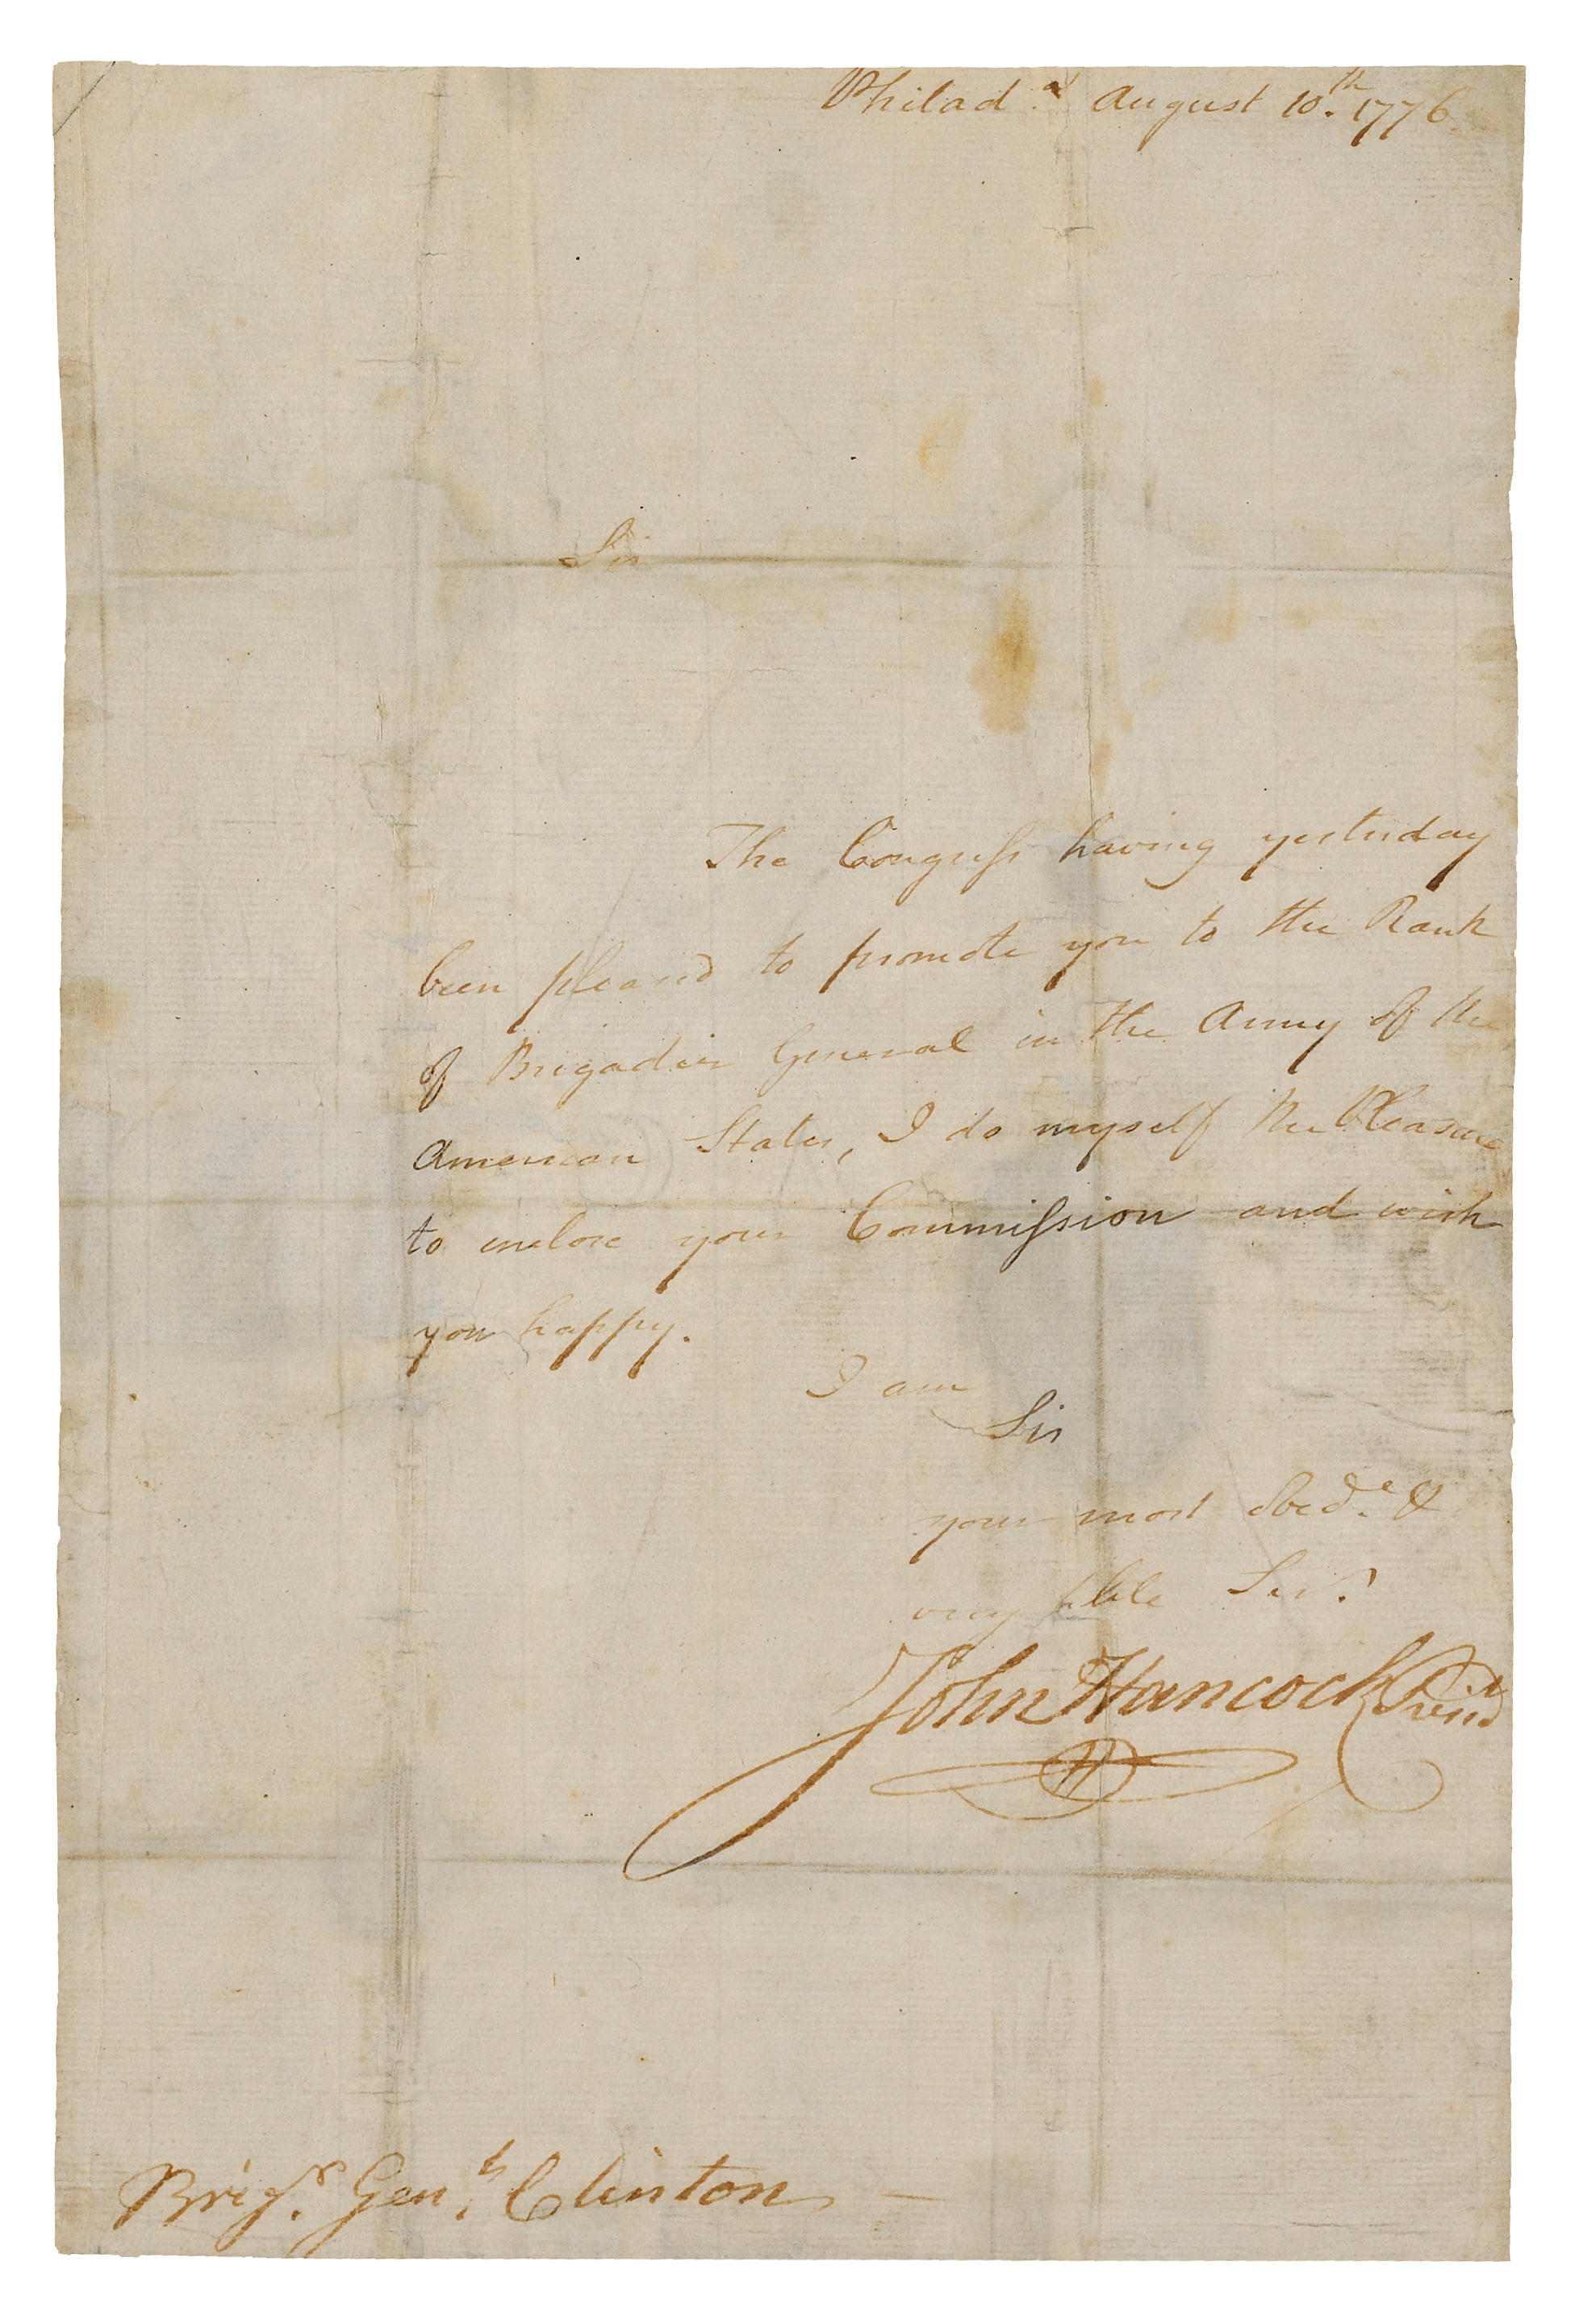 Philad.ᵃ August 10.th 1776.
Sir
The Congreſs having yesterday
been pleased to promote you to the Rank
of Brigadier General in the Army of the
American States, I do myself the Pleasure
to inclose your Commiſsion and wish
you happy.
I am
Sir
your most Obed.ᵗ &
very hble Serv.ᵗ
John Hancock Presidᵗ
H
Brigʳ. Genˡ. Clinton —